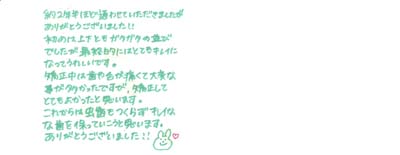 約2年半ほど通わせていただきましたが
ありがとうございました!!
初めは上下ともガタガタの歯が
でしたが最終的にはとてもキレイに
なってうれしいです。
矯正中は歯や口が痛くて大変な
事が多かったですが、矯正して
とてもよかったと思います。
これからは虫歯もつくらずキレイな
な歯を保っていこうと思います。
ありがとうございました!!